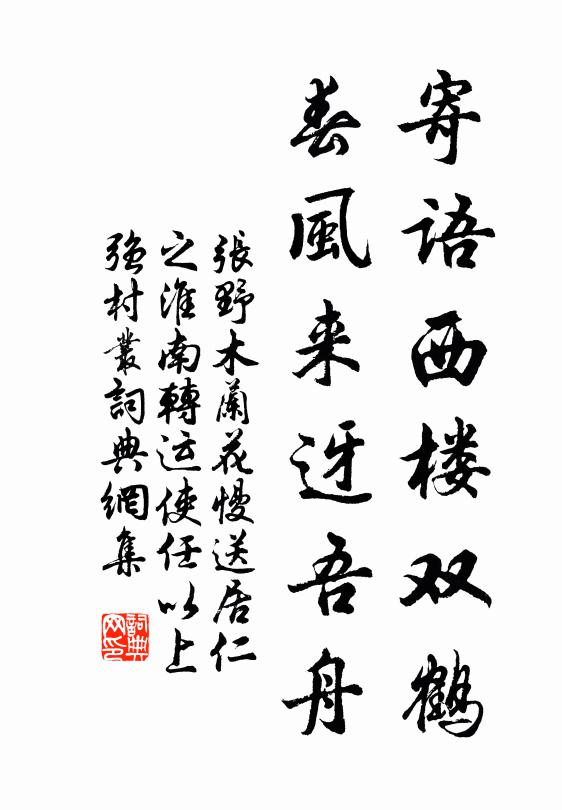 寄语西楼双鹤
春風来迓吾舟
張野木蘭花慢送居仁
之淮南轉运使任以上
强村叢詞典網集
詞典网印